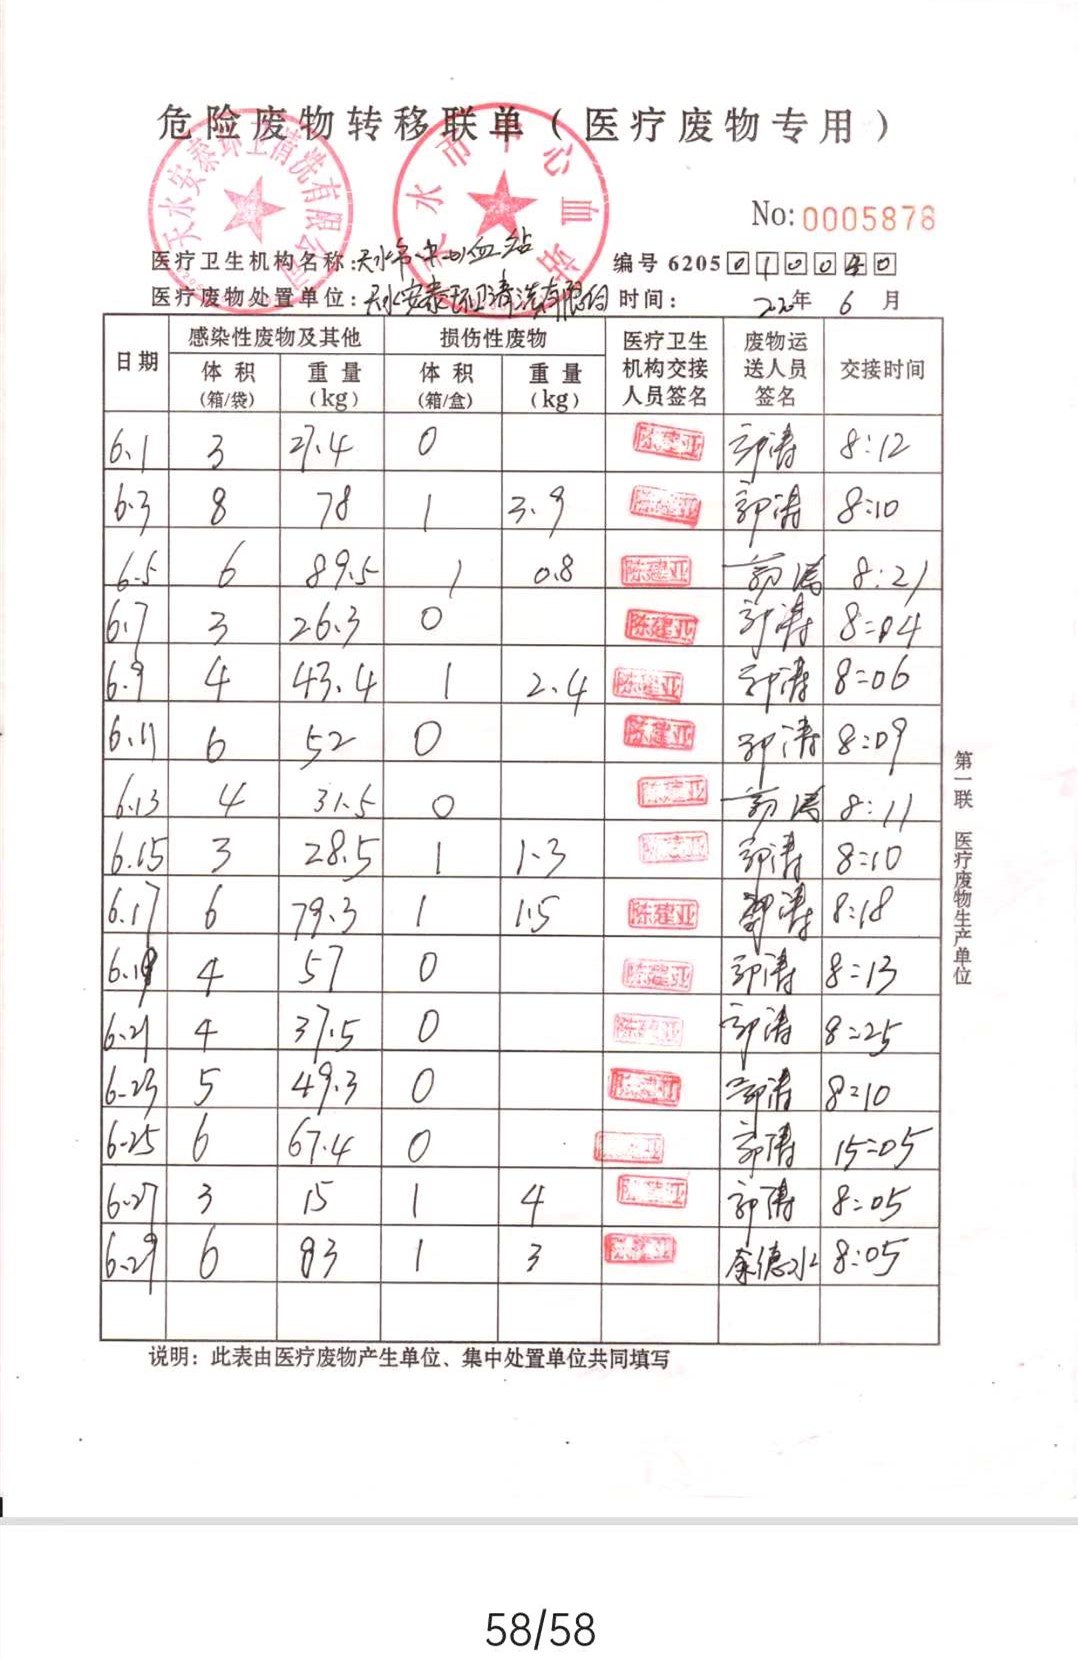 危险废物转移联单（医疗废物专用）
天水安泰环卫清洗有限公司
天水市中心血站
No: 0005878
医疗卫生机构名称:天水市中心血站 编号 6205 0 1 0 0 4 0
医疗废物处置单位:天水安泰环卫清洗有限公司 时间: 2020年 6 月
日期 感染性废物及其他 损伤性废物 医疗卫生机构交接人员签名 废物运送人员签名 交接时间
体积(箱/袋) 重量(kg) 体积(箱/盒) 重量(kg)
6.1 3 27.4 0 陈建亚 郭涛 8:12
6.3 8 78 1 3.9 陈建亚 郭涛 8:10
6.5 6 89.5 1 0.8 陈建亚 郭涛 8:21
6.7 3 26.3 0 陈建亚 郭涛 8:04
6.9 4 43.4 1 2.4 陈建亚 郭涛 8:06
6.11 6 52 0 陈建亚 郭涛 8:09
6.13 4 31.5 0 陈建亚 郭涛 8:11
6.15 3 28.5 1 1.3 陈建亚 郭涛 8:10
6.17 6 79.3 1 1.5 陈建亚 郭涛 8:18
6.19 4 57 0 陈建亚 郭涛 8:13
6.21 4 37.5 0 陈建亚 郭涛 8:25
6.23 5 49.3 0 陈建亚 郭涛 8:10
6.25 6 67.4 0 陈建亚 郭涛 15:05
6.27 3 15 1 4 陈建亚 郭涛 8:05
6.29 6 83 1 3 陈建亚 德水 8:05
第一联 医疗废物生产单位
说明：此表由医疗废物产生单位、集中处置单位共同填写
58/58